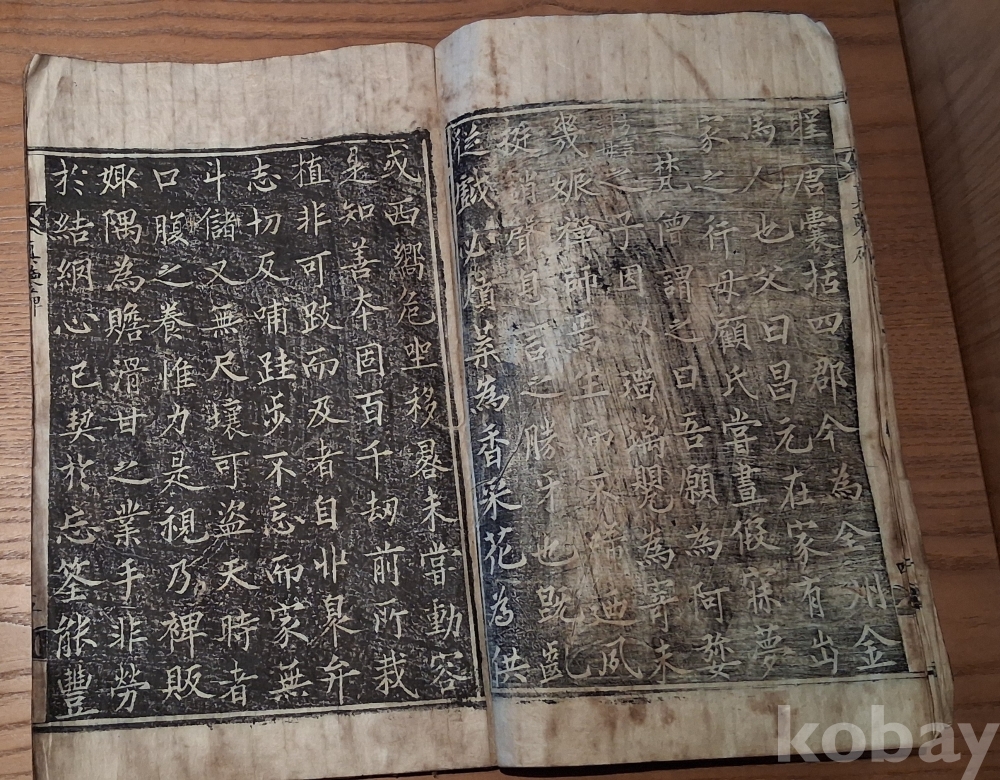 聖唐囊括四郡今為全州金
馬人也父曰昌元在家有出
家之行母顧氏嘗晝假寐夢
一梵僧謂之曰吾願為阿㜷
之子因以瑠璃甖為寄未
幾娠禪師焉生而不啼迺夙
挺銷聲息言之勝牙也既齓
從戱必燌葉為香采花為供
或西嚮危坐移晷未嘗動容
是知善本固百千劫前所栽
植非可跂而及者自丱臮弁
志切反哺跬步不忘而家無
斗儲又無尺壤可盜天時者
口腹之養惟力是視乃裨販
娵隅為贍滑甘之業手非勞
於結網心已契於忘筌能豐
kobay